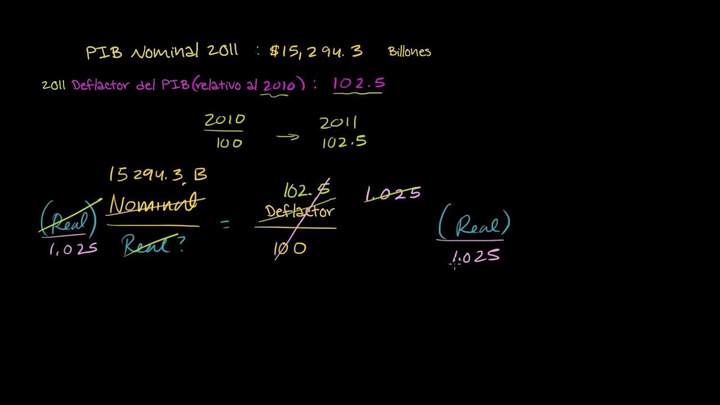 PIB Nominal 2011 : $15,294.3 Billones
2011 Deflactor del PIB (relativo al 2010) : 102.5
2010 → 2011
100 102.5
15294.3 B
Nominal 102.5 1.025
(Real) = Deflactor (Real)
1.025 Real? 100 1.025